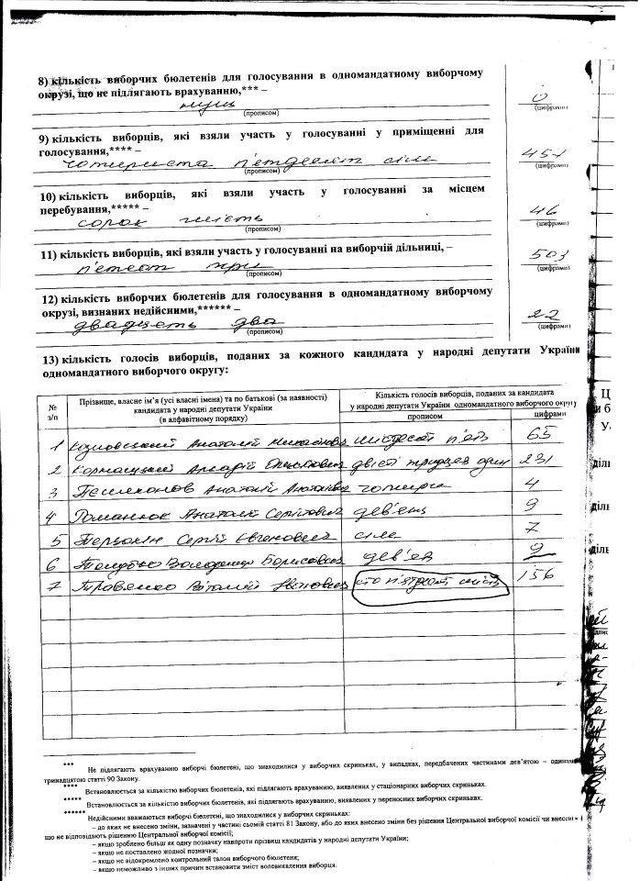 8) кількість виборчих бюлетенів для голосування в одномандатному виборчому
окрузі, що не підлягають врахуванню,*** –
нуль
0
(прописом)
(цифрами)
9) кількість виборців, які взяли участь у голосуванні у приміщенні для
голосування,**** –
чотириста п'ятдесят сім
457
(прописом)
(цифрами)
10) кількість виборців, які взяли участь у голосуванні за місцем
перебування,***** –
сорок шість
46
(прописом)
(цифрами)
11) кількість виборців, які взяли участь у голосуванні на виборчій дільниці, –
п'ятсот три
503
(прописом)
(цифрами)
12) кількість виборчих бюлетенів для голосування в одномандатному виборчому
окрузі, визнаних недійсними,****** –
двадцять два
22
(прописом)
(цифрами)
13) кількість голосів виборців, поданих за кожного кандидата у народні депутати України
одномандатного виборчого округу:
№
з/п
Прізвище, власне ім'я (усі власні імена) та по батькові (за наявності)
кандидата у народні депутати України
(в алфавітному порядку)
Кількість голосів виборців, поданих за кандидата
у народні депутати України одномандатного виборчого округу
прописом
цифрами
1 Анатолій шістдесят п'ять 65
2 Корнацький Аркадій двісті тридцять один 231
3 Анатолій чотири 4
4 Романюк Анатолій Сергійович дев'ять 9
5 Сергій Євгенович сім 7
6 Володимир Борисович дев'ять 9
7 Травянко Віталій Іванович сто п'ятдесят шість 156
*** Не підлягають врахуванню виборчі бюлетені, що знаходилися у виборчих скриньках, у випадках, передбачених частинами дев'ятою –
тринадцятою статті 90 Закону.
**** Встановлюється за кількістю виборчих бюлетенів, які підлягають врахуванню, виявлених у стаціонарних виборчих скриньках.
***** Встановлюється за кількістю виборчих бюлетенів, які підлягають врахуванню, виявлених у переносних виборчих скриньках.
****** Недійсними вважаються виборчі бюлетені, що знаходилися у виборчих скриньках:
– до яких не внесено зміни, зазначені у частині сьомій статті 81 Закону, або до яких внесено зміни без рішення Центральної виборчої комісії чи внесені
що не відповідають рішенню Центральної виборчої комісії;
– якщо зроблено більш як одну позначку навпроти прізвищ кандидатів у народні депутати України;
– якщо не поставлено жодної позначки;
– якщо не відокремлено контрольний талон виборчого бюлетеня;
– якщо неможливо з інших причин встановити зміст волевиявлення виборця.